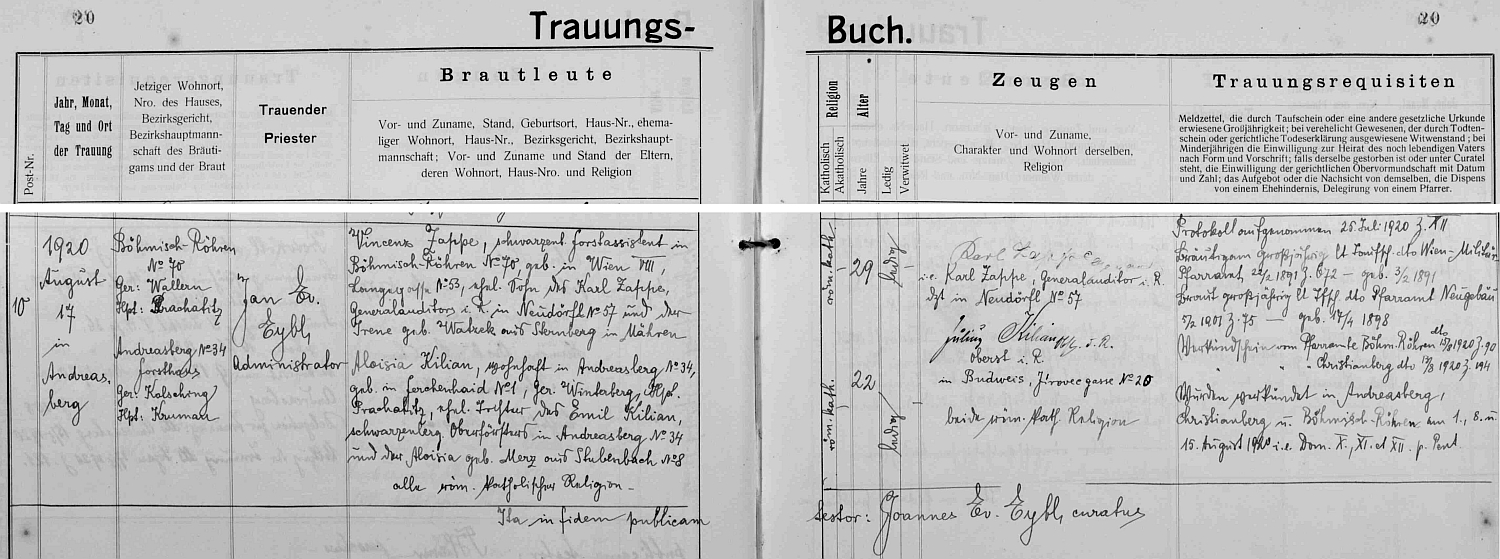 20
Trauungs-
Buch.
20
Post-Nr.
Jahr, Monat,
Tag und Ort
der Trauung
Jetziger Wohnort,
Nro. des Hauses,
Bezirksgericht,
Bezirkshauptmann-
schaft des Bräuti-
gams und der Braut
Trauender
Priester
Brautleute
Vor- und Zuname, Stand, Geburtsort, Haus-Nr., ehema-
liger Wohnort, Haus-Nr., Bezirksgericht, Bezirkshaupt-
mannschaft; Vor- und Zuname und Stand der Eltern,
deren Wohnort, Haus-Nro. und Religion
Religion
Katholisch
Akatholisch
Alter
Jahre
Ledig
Verwitwet
Zeugen
Vor- und Zuname,
Charakter und Wohnort derselben,
Religion
Trauungsrequisiten
Meldzettel, die durch Taufschein oder eine andere gesetzliche Urkunde
erwiesene Großjährigkeit; bei verehelicht Gewesenen, der durch Todten-
schein oder gerichtliche Todeserklärung ausgewiesene Witwenstand; bei
Minderjährigen die Einwilligung zur Heirat des noch lebendigen Vaters
nach Form und Vorschrift; falls derselbe gestorben ist oder unter Curatel
steht, die Einwilligung der gerichtlichen Obervormundschaft mit Datum
und Zahl; das Aufgebot oder die Nachsicht von demselben, die Dispens
von einem Ehehindernis, Delegirung von einem Pfarrer.
10
1920
August
17
in
Andreas-
berg
Böhmisch-Röhren
No 70
Ger: Wallern
Hpt: Prachatitz
Andreasberg No 34
Forsthaus
Ger: Kalsching
Hpt: Krumau
Jan Ev.
Eybl,
Administrator
Vincenz Zappe, schwarzenb. Forstassistent in
Böhmisch-Röhren No 70, geb. in Wien VIII,
Langegasse No 53, ehel. Sohn des Karl Zappe,
Generalauditors i. R. in Neudörfl No 57 und der
Irene geb. Watzek aus Sternberg in Mähren
Aloisia Kilian, wohnhaft in Andreasberg No 34,
geb. in Ferchenhaid No 1, Ger. Winterberg, Hpt.
Prachatitz, ehel. Tochter des Emil Kilian,
schwarzenberg. Oberförsters in Andreasberg No 34
und der Aloisia geb. Merz aus Stubenbach No 8
alle röm. katholischer Religion
Ita in fidem publicam
röm. kath.
29
ledig
röm. kath.
22
ledig
Karl Zappe
i.e. Karl Zappe, Generalauditor i. R.
dzt in Neudörfl No 57
Julius Kilian
Oberst i. R.
in Budweis, Jirovecgasse No 20
beide röm. kath. Religion
Protokoll aufgenommen 25 Juli 1920 Z. XII
Bräutigam großjährig lt Taufsch. dto Wien-Militär-
Pfarramt 22/2 1891 Z. 672 – geb. 3/2 1891
Braut großjährig lt Tfsch. dto Pfarramt Neugebäu
5/2 1901 Z. 75 geb. 17/4 1898
Verkündschein vom Pfarramte Böhm. Röhren dto 15/8 1920 Z. 90
" " Christianberg dto 17/8 1920 Z. 194
Wurden verkündet in Andreasberg,
Christianberg u. Böhmisch-Röhren am 1., 8. u.
15. August 1920 i.e. Dom. X., XI. et XII. p. Pent.
testor: Joannes Ev. Eybl, curatus